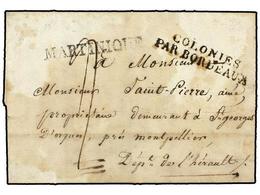 MARTINIQUE
COLONIES
PAR BORDEAUX
à Monsieur
Monsieur Saint-Pierre, ainé
propriétaire demeurant à St Georges
D'orques, près montpellier,
Dépt de l'hérault.